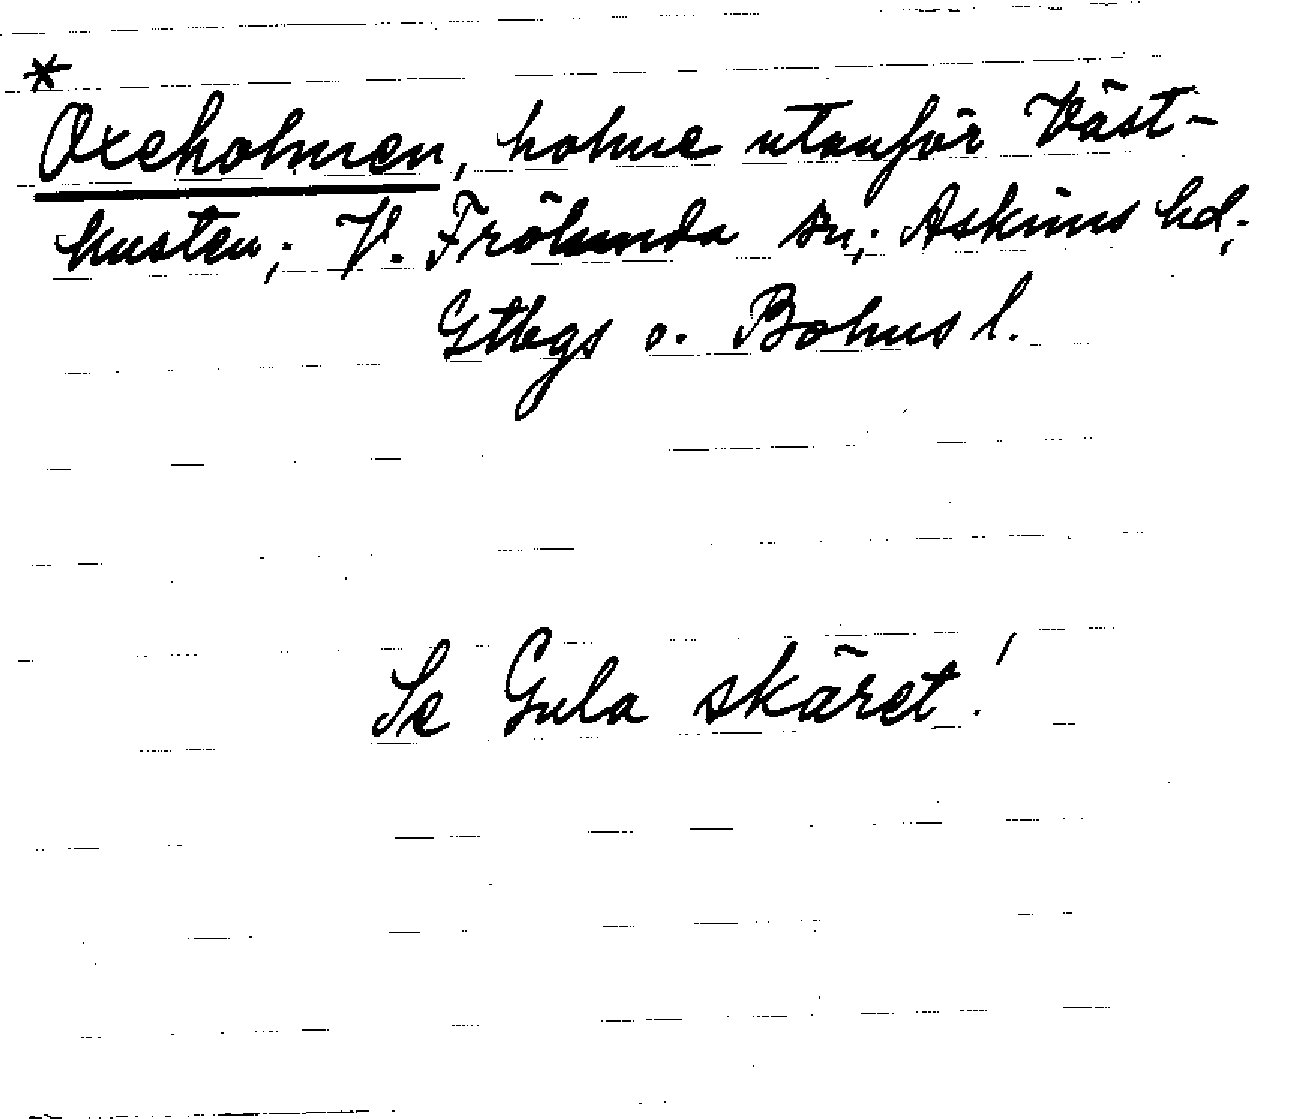 *
Oxeholmen, holme utanför Väst-
kusten; V. Frölunda sn; Askims hd;
Gtbgs o. Bohus l.
Se Gula skäret!